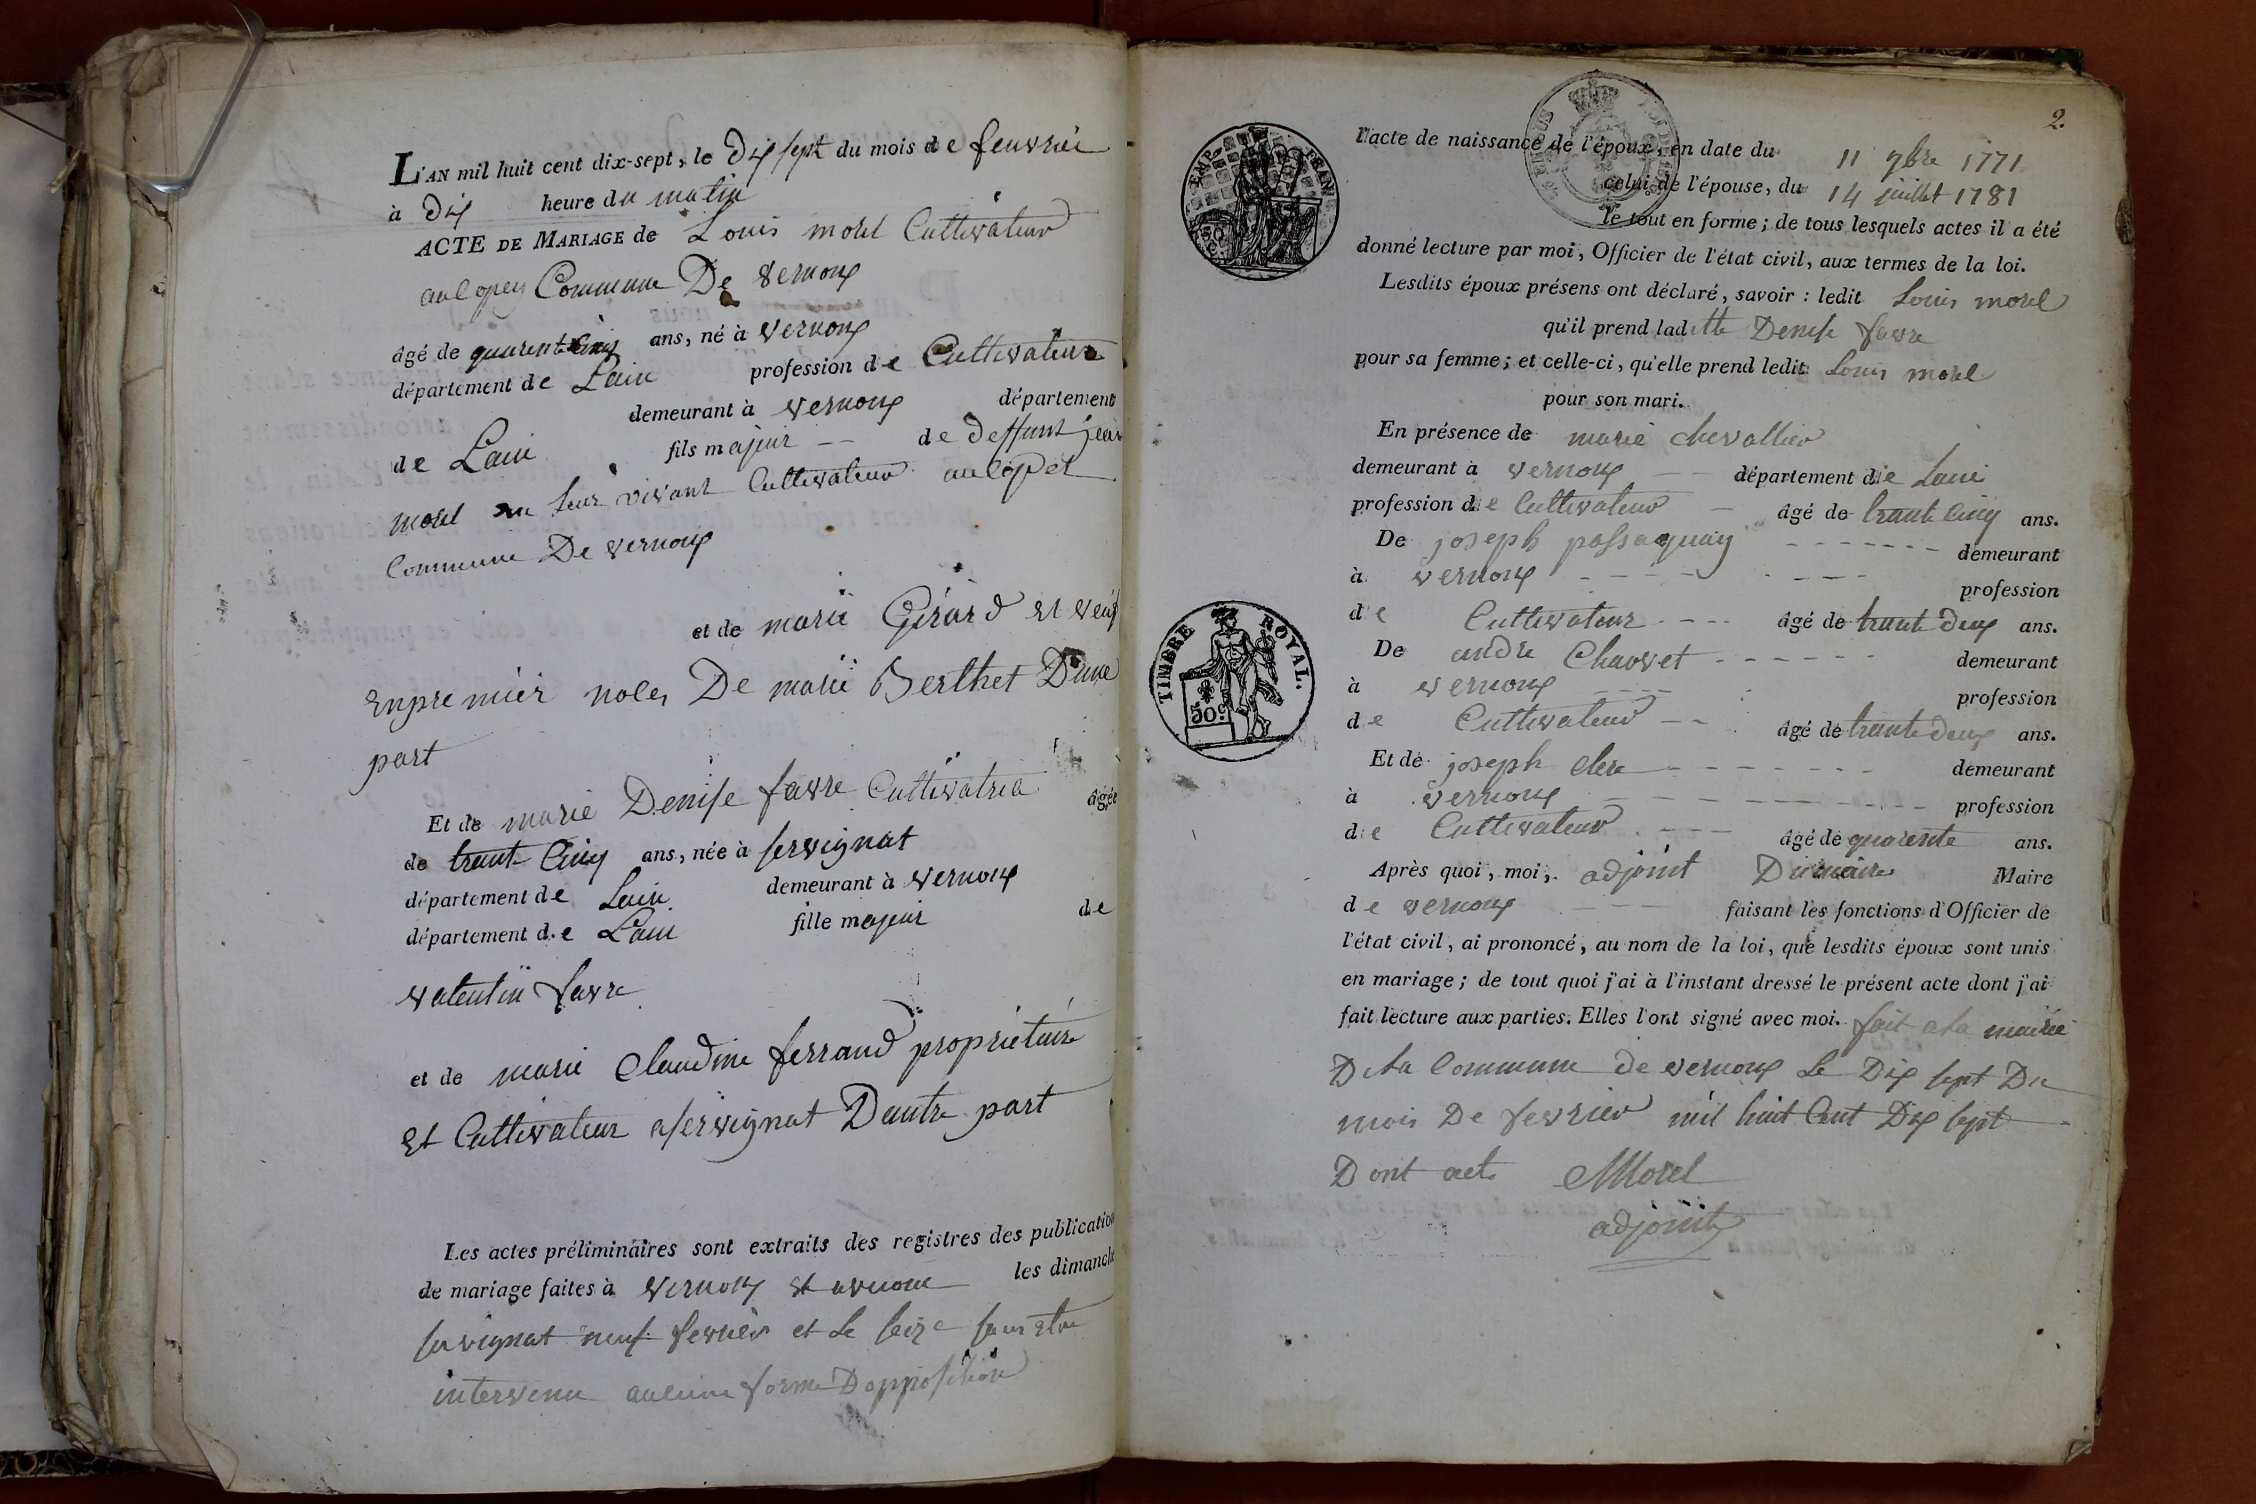 L'AN mil huit cent dix-sept, le Dix sept du mois de feuvrier
à Dix heure du matin
ACTE DE MARIAGE de Louis morel Cultivateur
au Copey Commune De vernoux
âgé de quarent Cinq ans, né à vernoux
département de Lain profession de Cultivateur
demeurant à vernoux département
de Lain fils majeur -- de deffunt jean
morel en seur vivant Cultivateur au Copet
Commune De vernoux
et de marie Gérard et veuf
En premier noles De marie Berthet Dune
part
Et de marie Denise favre Cultivatrice âgée
de trante Cinq ans, née à servignat
département de Lain demeurant à vernoux
département de Lain fille majeur de
valentin favre
et de marie Claudine ferrand propriétaire
Et Cultivateur a servignat Dautre part
Les actes préliminaires sont extraits des registres des publication
de mariage faites à vernoux les dimanche
servignat neuf fevrier et Le seize sans Etre
intervenu aucune forme Dopposition
2.
l'acte de naissance de l'époux, en date du 11 7bre 1771
celui de l'épouse, du 14 juillet 1781
le tout en forme; de tous lesquels actes il a été
donné lecture par moi, Officier de l'état civil, aux termes de la loi.
Lesdits époux présens ont déclaré, savoir : ledit Louis morel
qu'il prend laditte Denise favre
pour sa femme; et celle-ci, qu'elle prend ledit Louis morel
pour son mari.
En présence de marie chevallier
demeurant à vernoux département de Lain
profession de Cultivateur âgé de trante Cinq ans.
De joseph passaquay demeurant
à vernoux profession
de Cultivateur âgé de trante deux ans.
De andre Chauvet demeurant
à vernoux profession
de Cultivateur âgé de trante deux ans.
Et de joseph clere demeurant
à vernoux profession
de Cultivateur âgé de quarente ans.
Après quoi, moi, adjoint Dumaire Maire
de vernoux faisant les fonctions d'Officier de
l'état civil, ai prononcé, au nom de la loi, que lesdits époux sont unis
en mariage; de tout quoi j'ai à l'instant dressé le présent acte dont j'ai
fait lecture aux parties. Elles l'ont signé avec moi. fait a La mairie
De La Commune de vernoux Le Dix sept Du
mois De fevrier mil huit Cent Dix sept
Dont acte Morel
adjoint
TIMBRE ROYAL.
50c.